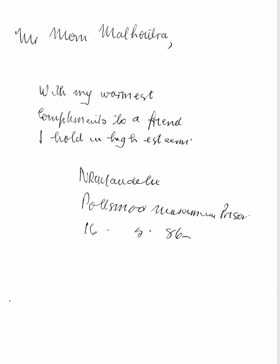 Mr Moni Malhoutra,
With my warmest
compliments to a friend
I hold in high esteem.
NRMandela
Pollsmoor Maximum Prison
16 . 5 . 86